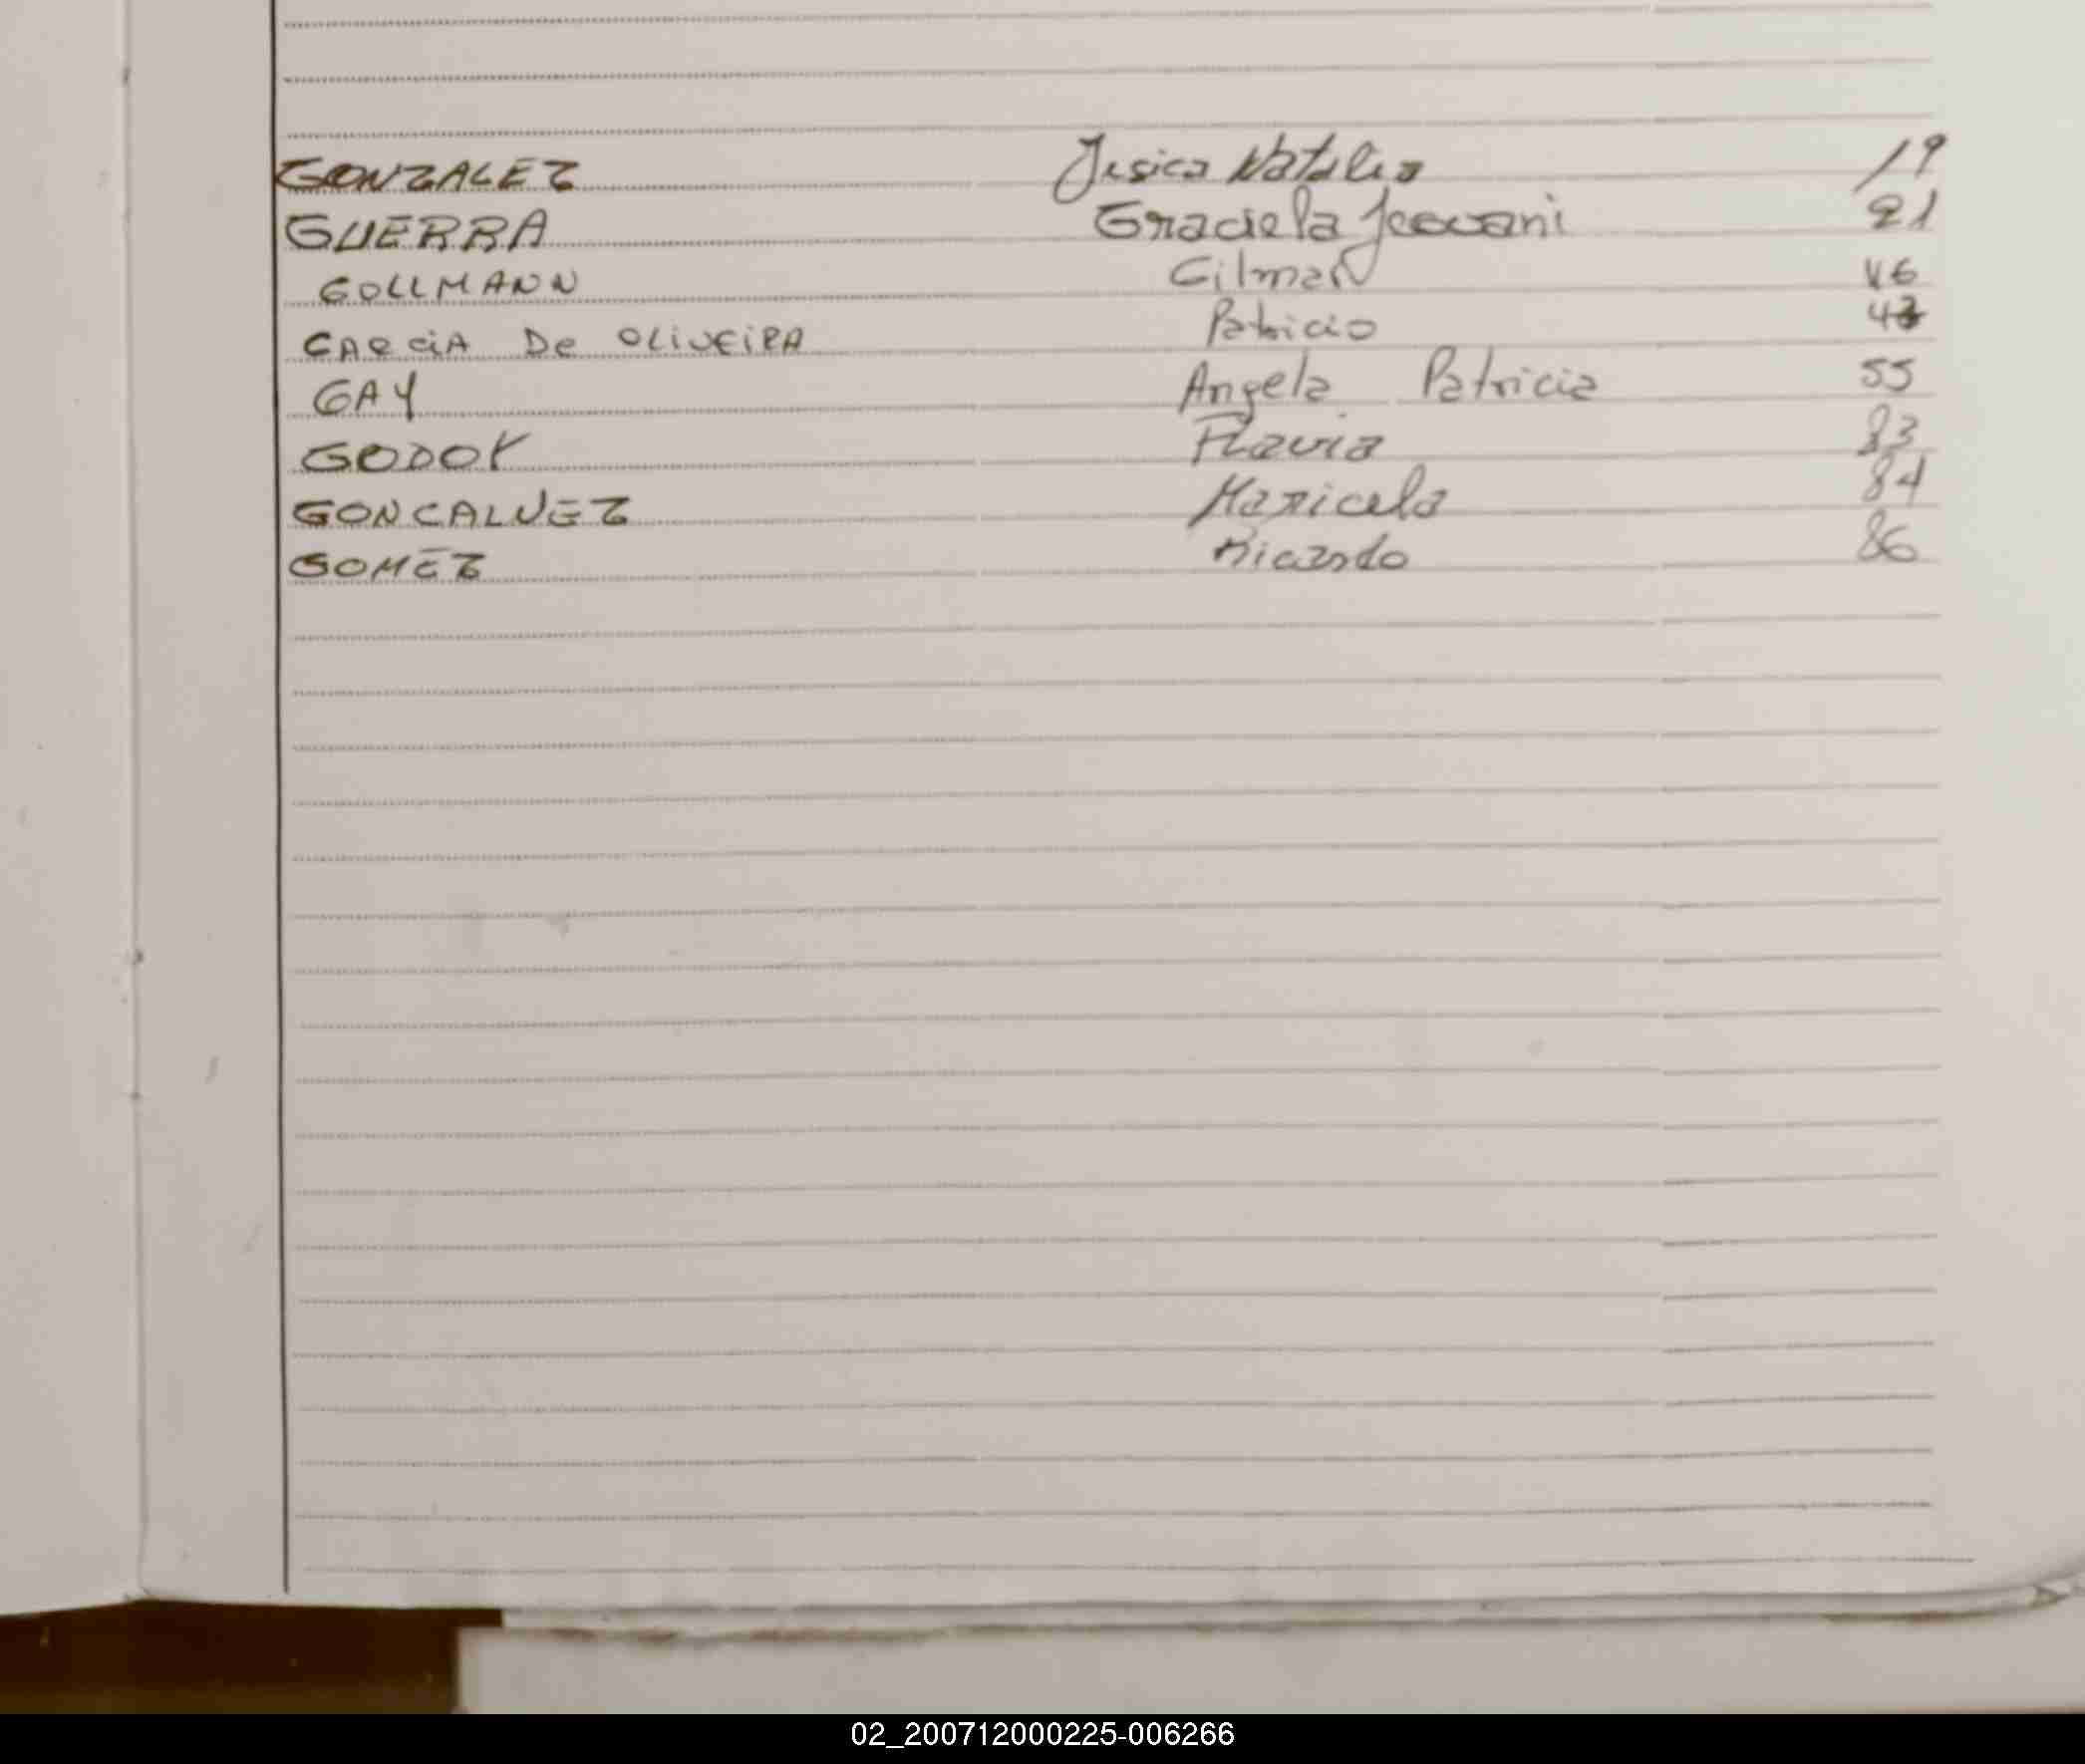 GONZALEZ Jesica Natalia 19
GUERRA Graciela 21
GOLLMANN Gilmar 46
GARCIA De OLIVEIRA Patricio
GAY Angela Patricia 55
GODOY Flavia 83
GONCALVEZ Maricela 84
GOMEZ Ricardo 86
02_200712000225-006266